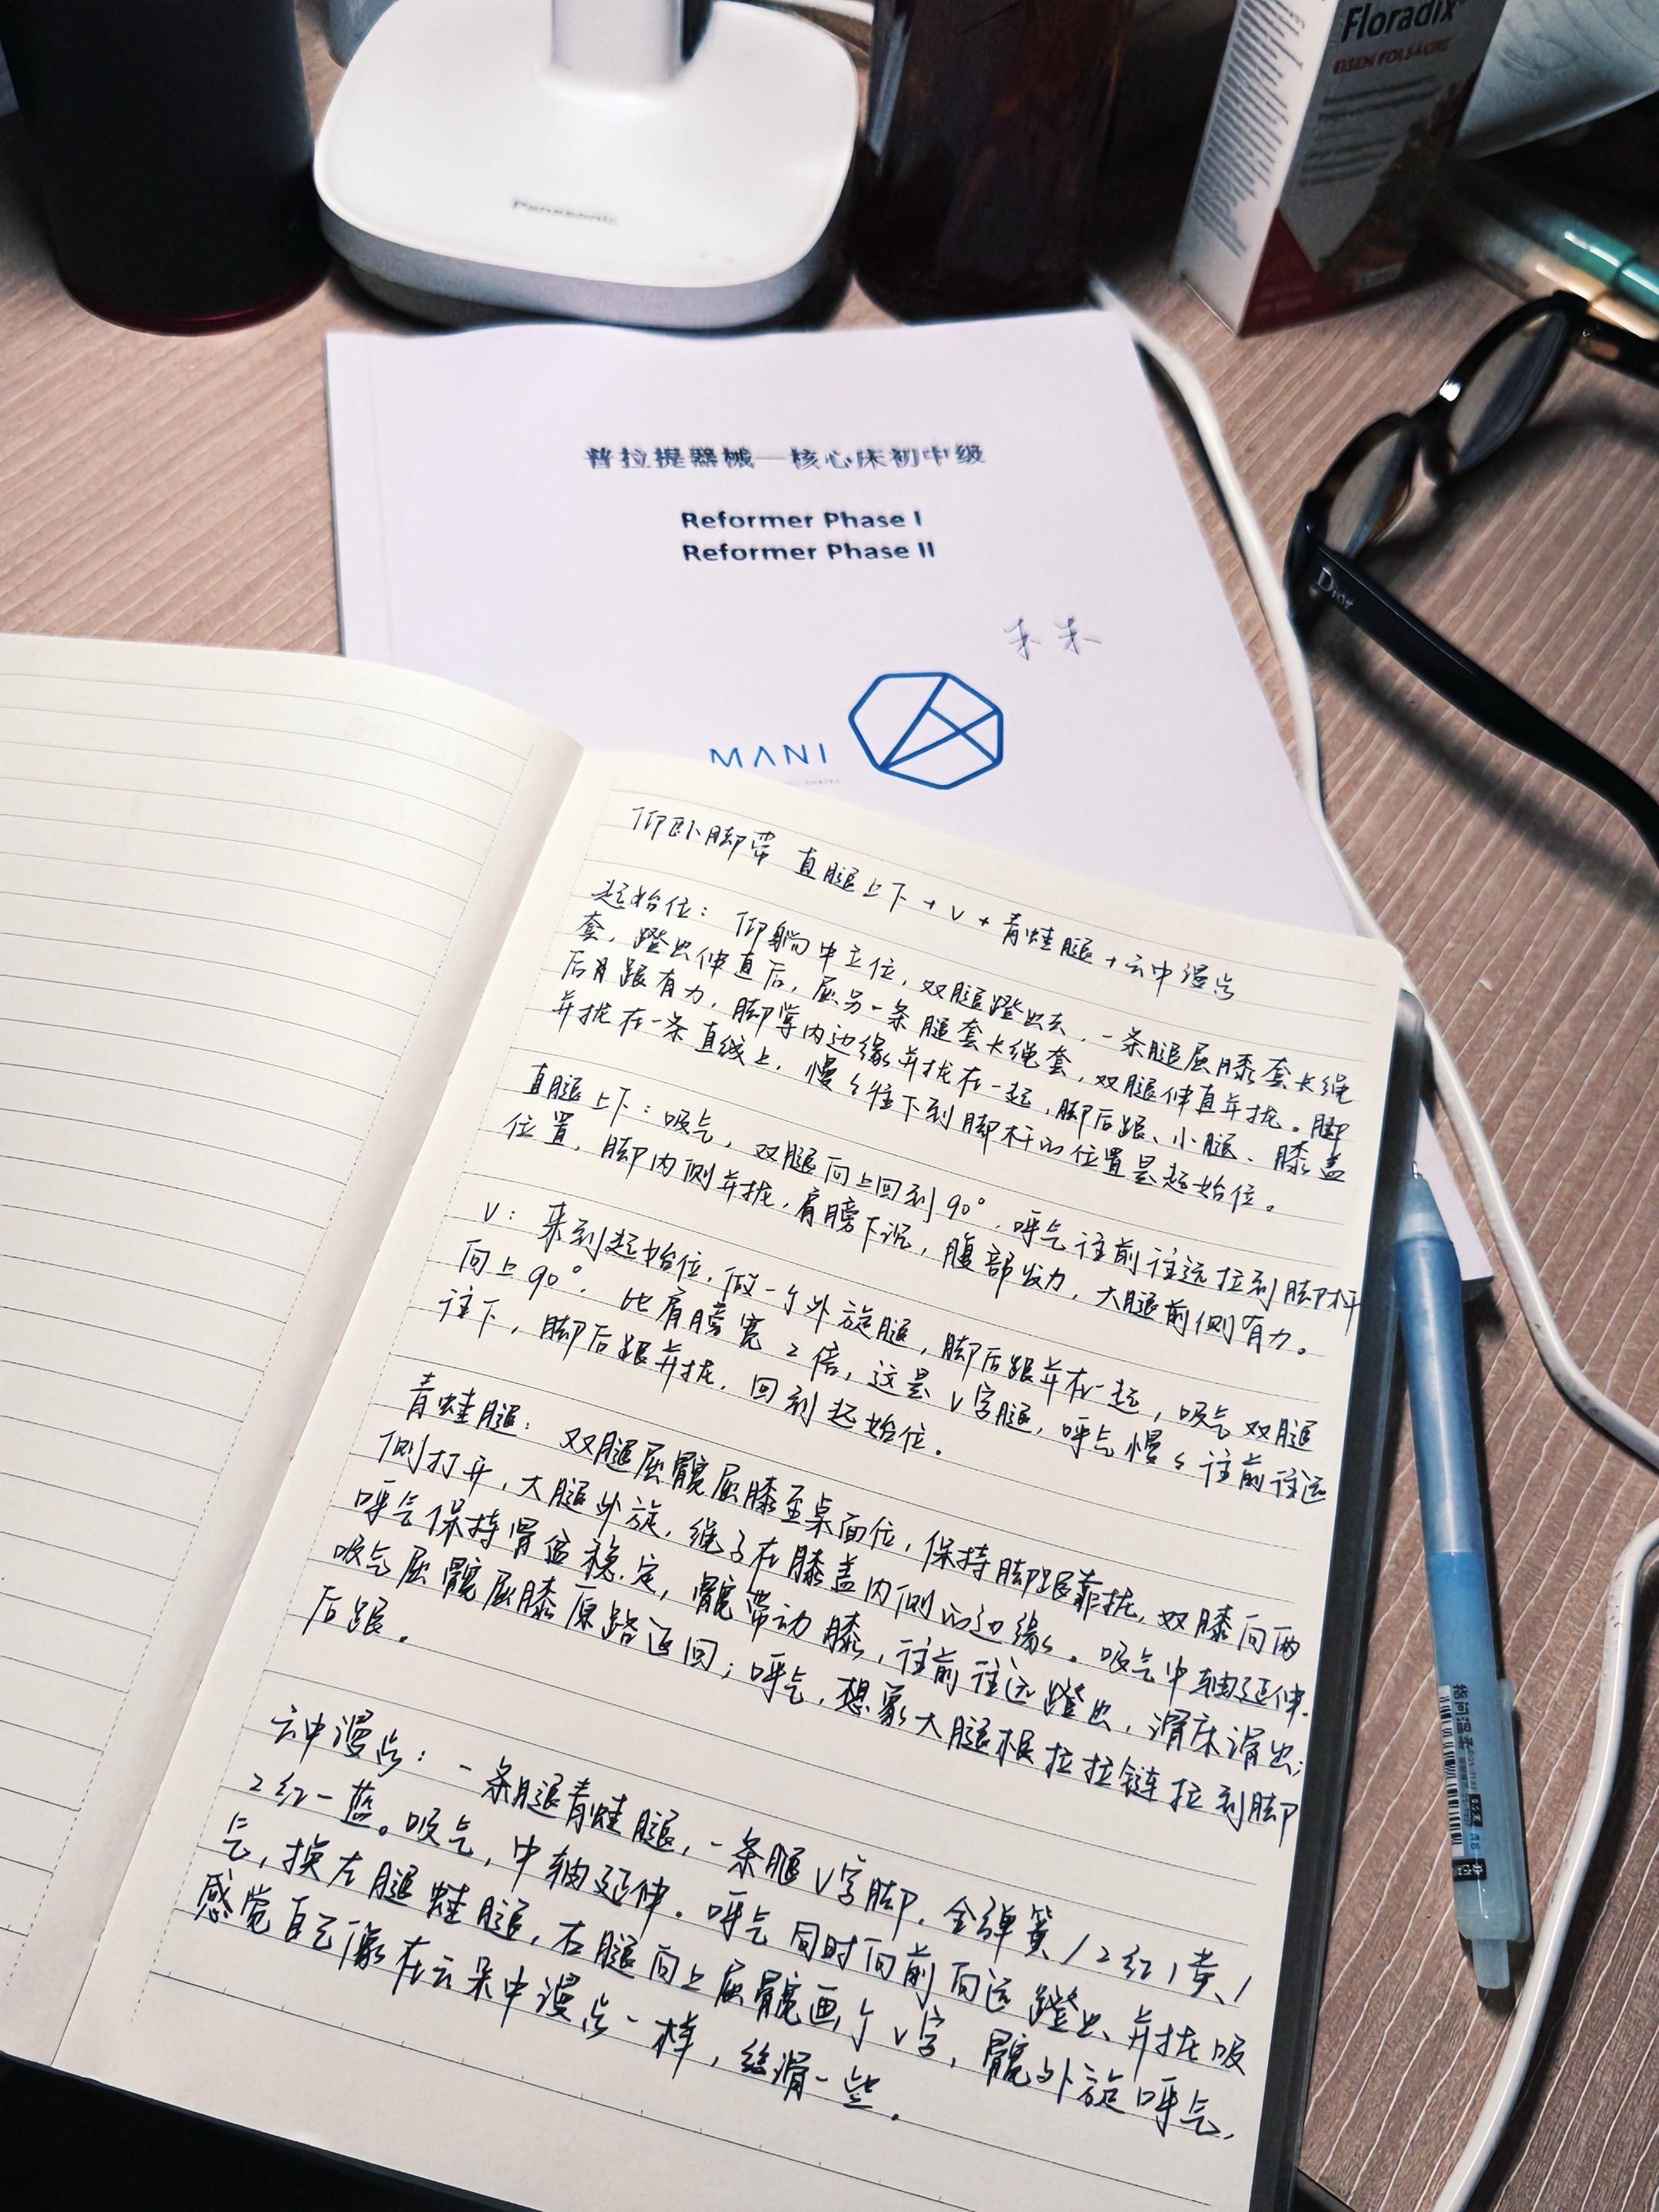 Floradix
EISEN FOLSÄURE
Panasonic
普拉提器械—核心床初中级
Reformer Phase I
Reformer Phase II
Dior
MANI
仰卧脚带 直腿上下+V+青蛙腿+云中漫步
起始位：仰躺中立位，双腿蹬出去，一条腿屈膝套长绳
套，蹬出伸直后，屈另一条腿套长绳套，双腿伸直并拢。脚
后跟有力，脚掌内边缘并拢在一起，脚后跟、小腿、膝盖
并拢在一条直线上，慢慢往下到脚杆的位置是起始位。
直腿上下：吸气，双腿向上回到90°，呼气往前往远拉到脚杆
位置，脚内侧并拢，肩膀下沉，腹部发力，大腿前侧有力。
V：来到起始位，做一个外旋腿，脚后跟并在一起，吸气双腿
向上90°，比肩膀宽2倍，这是V字腿，呼气慢慢往前往远
往下，脚后跟并拢，回到起始位。
青蛙腿：双腿屈髋屈膝至桌面位，保持脚跟靠拢，双膝向两
侧打开，大腿外旋，绳子在膝盖内侧的边缘。吸气中轴延伸.
呼气保持骨盆稳定，髋带动膝，往前往远蹬出，滑床滑出；
吸气屈髋屈膝原路返回；呼气，想象大腿根拉拉链拉到脚
后跟.
云中漫步：一条腿青蛙腿，一条腿V字脚，全弹簧/2红1黄/
2红一蓝。吸气，中轴延伸.呼气同时向前向远蹬出、并拢吸
气，换左腿蛙腿，右腿向上屈髋画个V字，髋外旋呼气，
感觉自己像在云朵中漫步一样，丝滑一些.